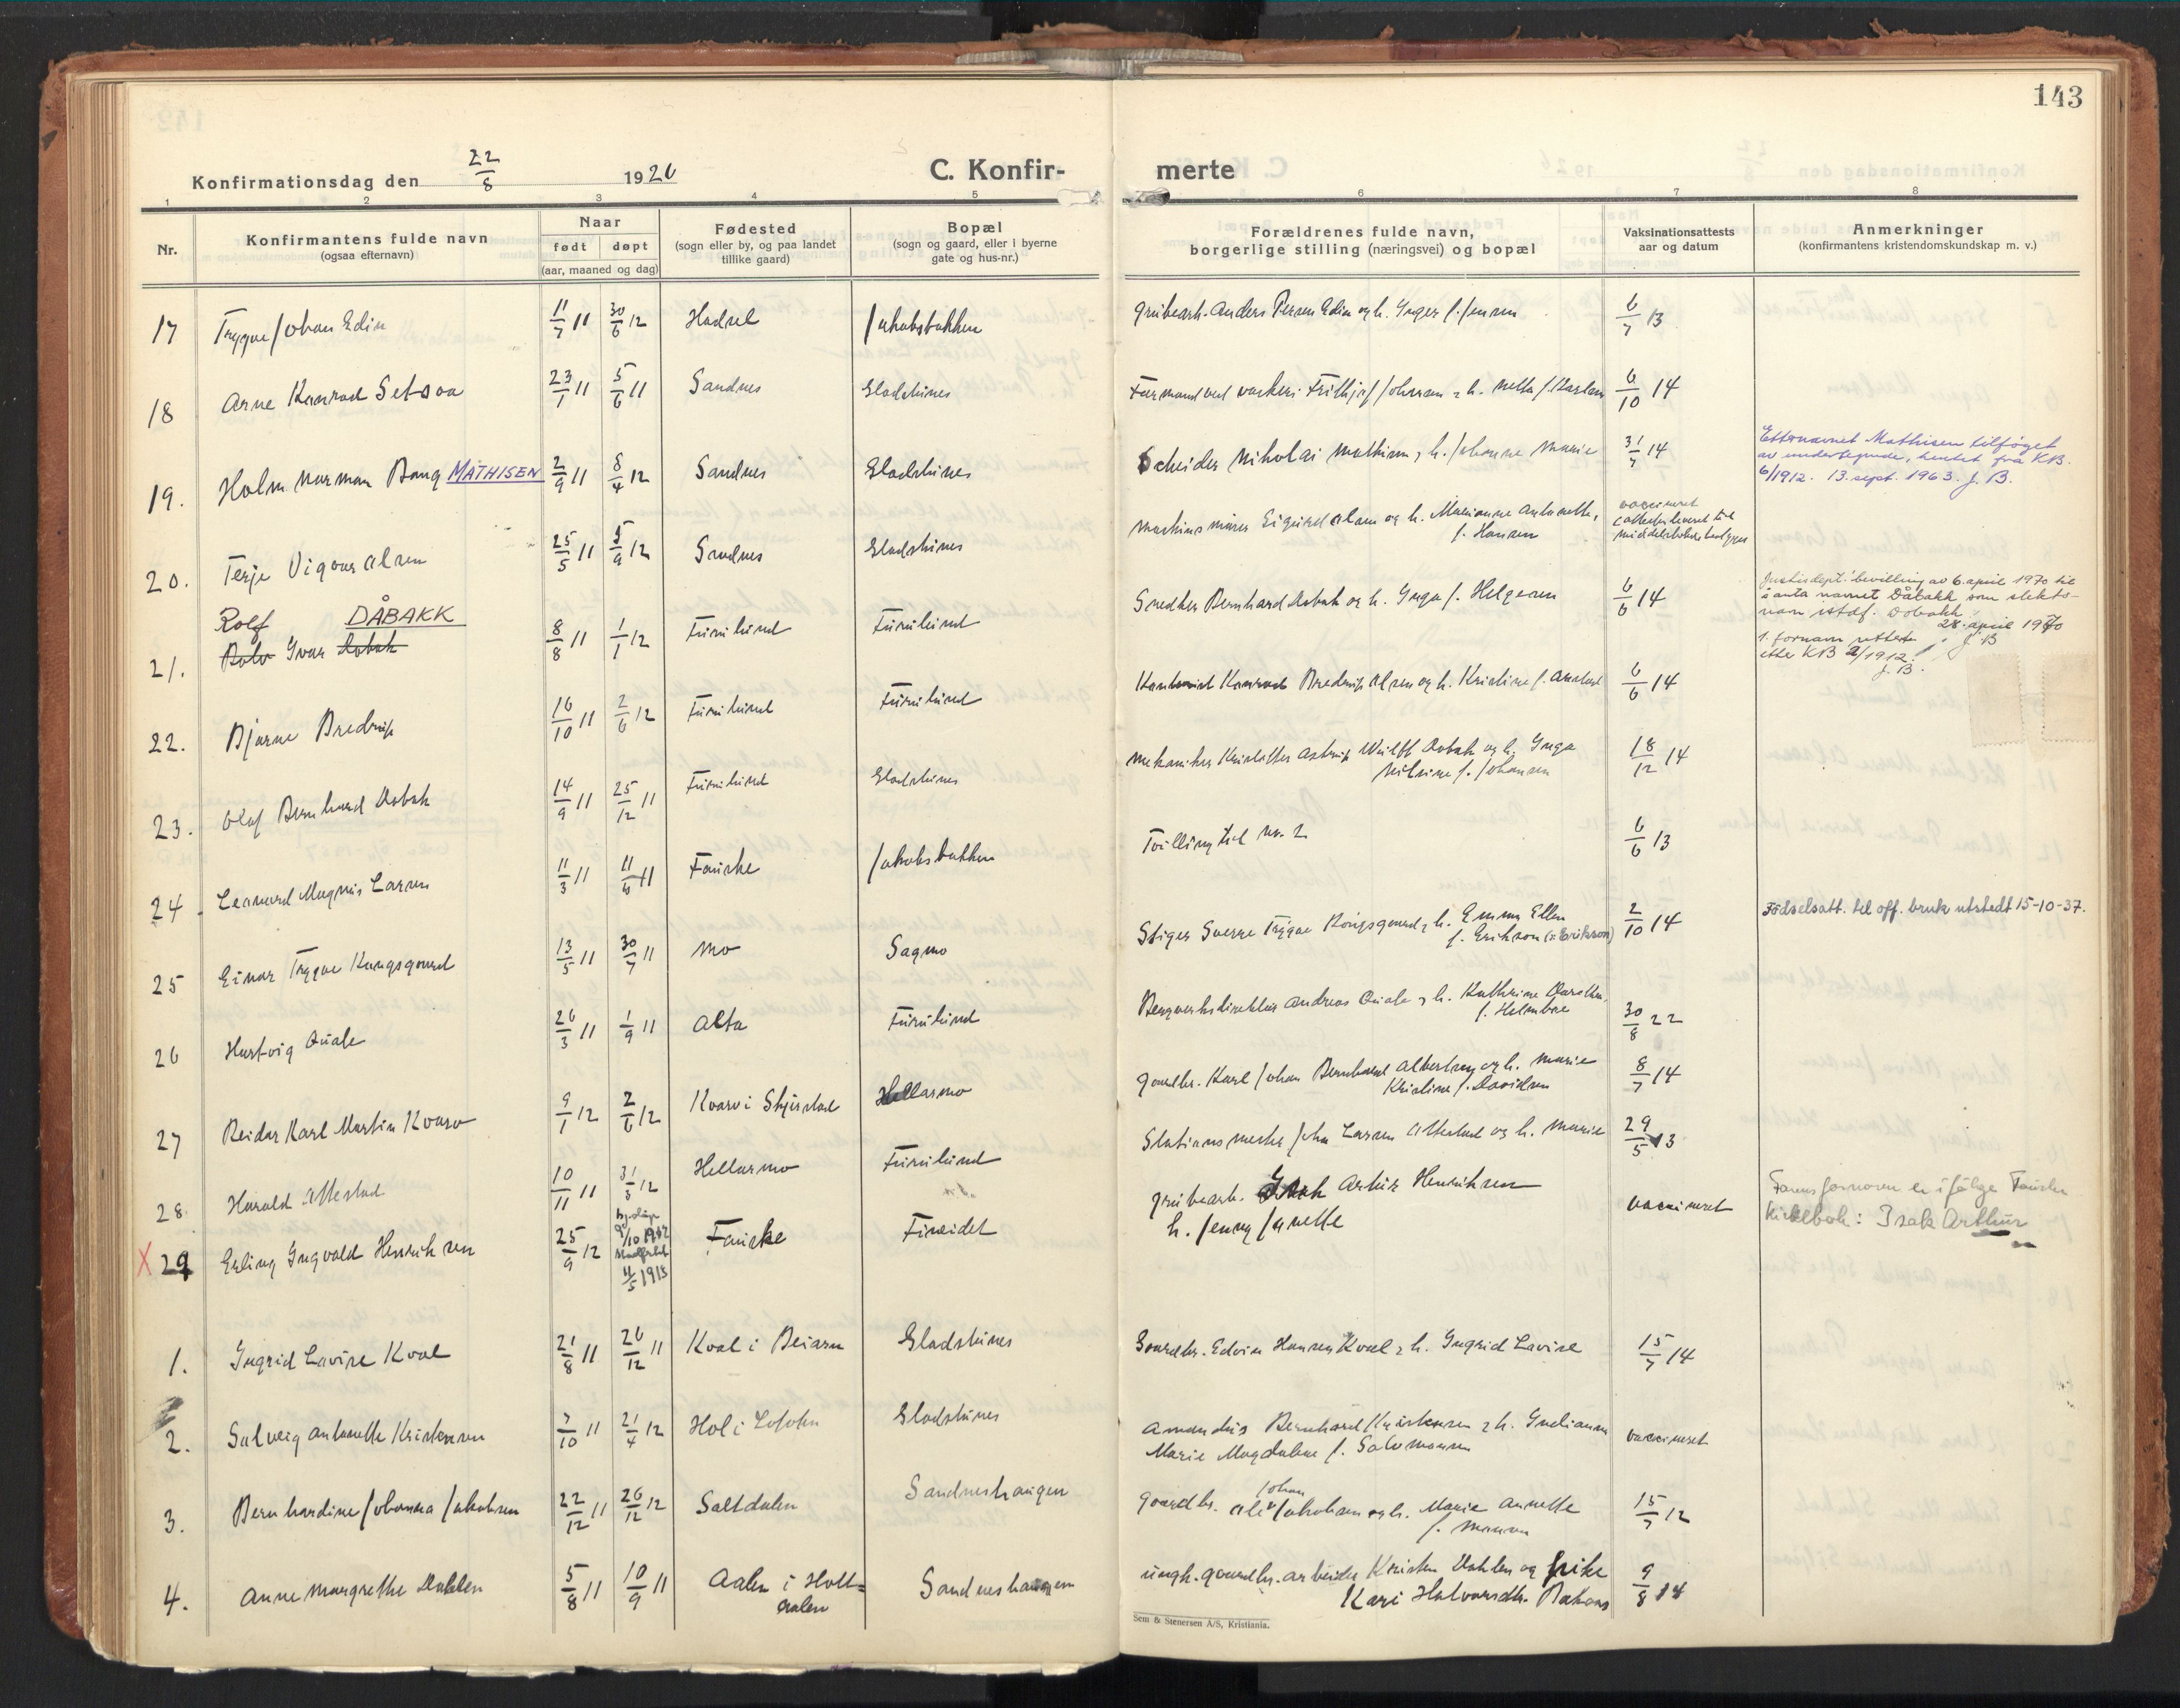 143
Konfirmationsdag den 22/8 1926
C. Konfir-
merte
1 2 3 4 5 6 7 8
Nr.
Konfirmantens fulde navn
(ogsaa efternavn)
Naar
født døpt
(aar, maaned og dag)
Fødested
(sogn eller by, og paa landet
tillike gaard)
Bopæl
(sogn og gaard, eller i byerne
gate og hus-nr.)
Forældrenes fulde navn,
borgerlige stilling (næringsvei) og bopæl
Vaksinationsattests
aar og datum
Anmerkninger
(konfirmantens kristendomskundskap m. v.)
17 Trygve Johan Edin 11/7 11 30/6 12 Hadsel Jakobsbakken Grubearb. Anders Persen Edin og h. Inger f. Jensen 6/7 13
18 Arne Konrad Setsaa 23/1 11 5/6 11 Sandnes Gladstines Formand ved vaskeri Frithjof Johansen & h. Netta f. Karlsen 6/10 14
19. Holm Norman Bang MATHISEN 2/9 11 8/4 12 Sandnes Gladstines Scheider Nikolai Mathisen & h. Johanne Marie 31/7 14
Etternavnet Mathisen tilføyet
av undertegnede, hentet fra KB.
6/1912. 13. sept. 1963. J. B.
20. Terje Vigour Olsen 25/5 11 5/9 12 Sandnes Gladstines Maskinsmører Sigurd Olsen og h. Marianne Antonette,
f. Hansen
vaccineret
Rolf DÅBAKK
21. Rolv Ivar Dobak 8/8 11 1/1 12 Furulund Furulund Snedker Bernhard Dobak og h. Inga f. Helgesen 6/6 14
Justisdept. bevilling av 6. april 1970 til
å anta navnet Dåbakk som slekts-
navn istdf. Dobakk.
28. april 1970
J. B
1. fornavn rettet
etter KB 2/1912.
J. B.
22. Bjarne Bredrup 16/10 11 2/6 12 Furulund Furulund Konrad Bredrup Olsen og h. Kristine f. 6/6 14
23. Olaf Bernhard Dobak 14/9 11 25/12 11 Furulund Gladstines Mekaniker Kristoffer Astrup Wulff Dobak og h. Inga
Nilsine f. Johansen 18/12 14
24. Leonard Magnus Larsen 11/3 11 11/6 11 Fauske Jakobsbakken Tvilling til no. 2 6/6 13
25 Einar Trygve Kongsgaard 13/5 11 30/7 11 Mo Sagmo Stiger Sverre Trygve Kongsgaard & h. Emma Ellen
f. Erikson (: Erikson) 2/10 14 Fødselsatt. til off. bruk utstedt 15-10-37.
26 Hartvig Quale 26/3 11 1/9 11 Alta Furulund Bergverksdirektør Andreas Quale & h. Kathrine Dorothea
f. Helmboe 30/8 22
27 Reidar Karl Martin Kvarv 9/1 12 2/6 12 Kvarv i Skjerstad Hellarmo Gaardbr. Karl Johan Bernhard Albertsen og h. Marie
Kristine f. Davidsen 8/7 14
28 Harald Alfestad 10/11 11 31/3 12 Hellarmo Furulund Stationsmester John Larsen Alfestad og h. Marie 29/5 13
X 29 Erling Ingvald Henriksen 25/9 12 hj.døpt 9/10 1912 stadfestet 11/5 1913 Fauske Fineidet Grubearb. Isak Artur Henriksen
h. Jenny Janette vaccineret
Farens fornavn er ifølge Fauske
kirkebok: Isak Arthur
1. Ingrid Lovise Kval 21/8 11 26/12 11 Kval i Beiarn Gladstines Gaardbr. Edvin Hansen Kval & h. Ingrid Lovise 15/7 14
2. Solveig Antonette Kristensen 7/10 11 21/4 12 Hol i Lofoten Gladstines Amandus Bernhard Kristensen & h. Indianna
Marie Magdalene f. Salomonsen vaccineret
3. Bernhardine Johanna Jakobsen 22/12 11 26/12 12 Saltdalen Sandneshaugen Gaardbr. Ole Johan Jakobsen og h. Marie Annette
f. Monsen 15/7 12
4. Anne Margrethe Dahlen 5/8 11 10/9 11 Aalen i Holt=
aalen Sandneshaugen ungk. gaardbr. arbeider Kristen Dahlen og pike
Kari Halvorsdtr. Bakaas 9/8 14
Sem & Stenersen A/S, Kristiania.